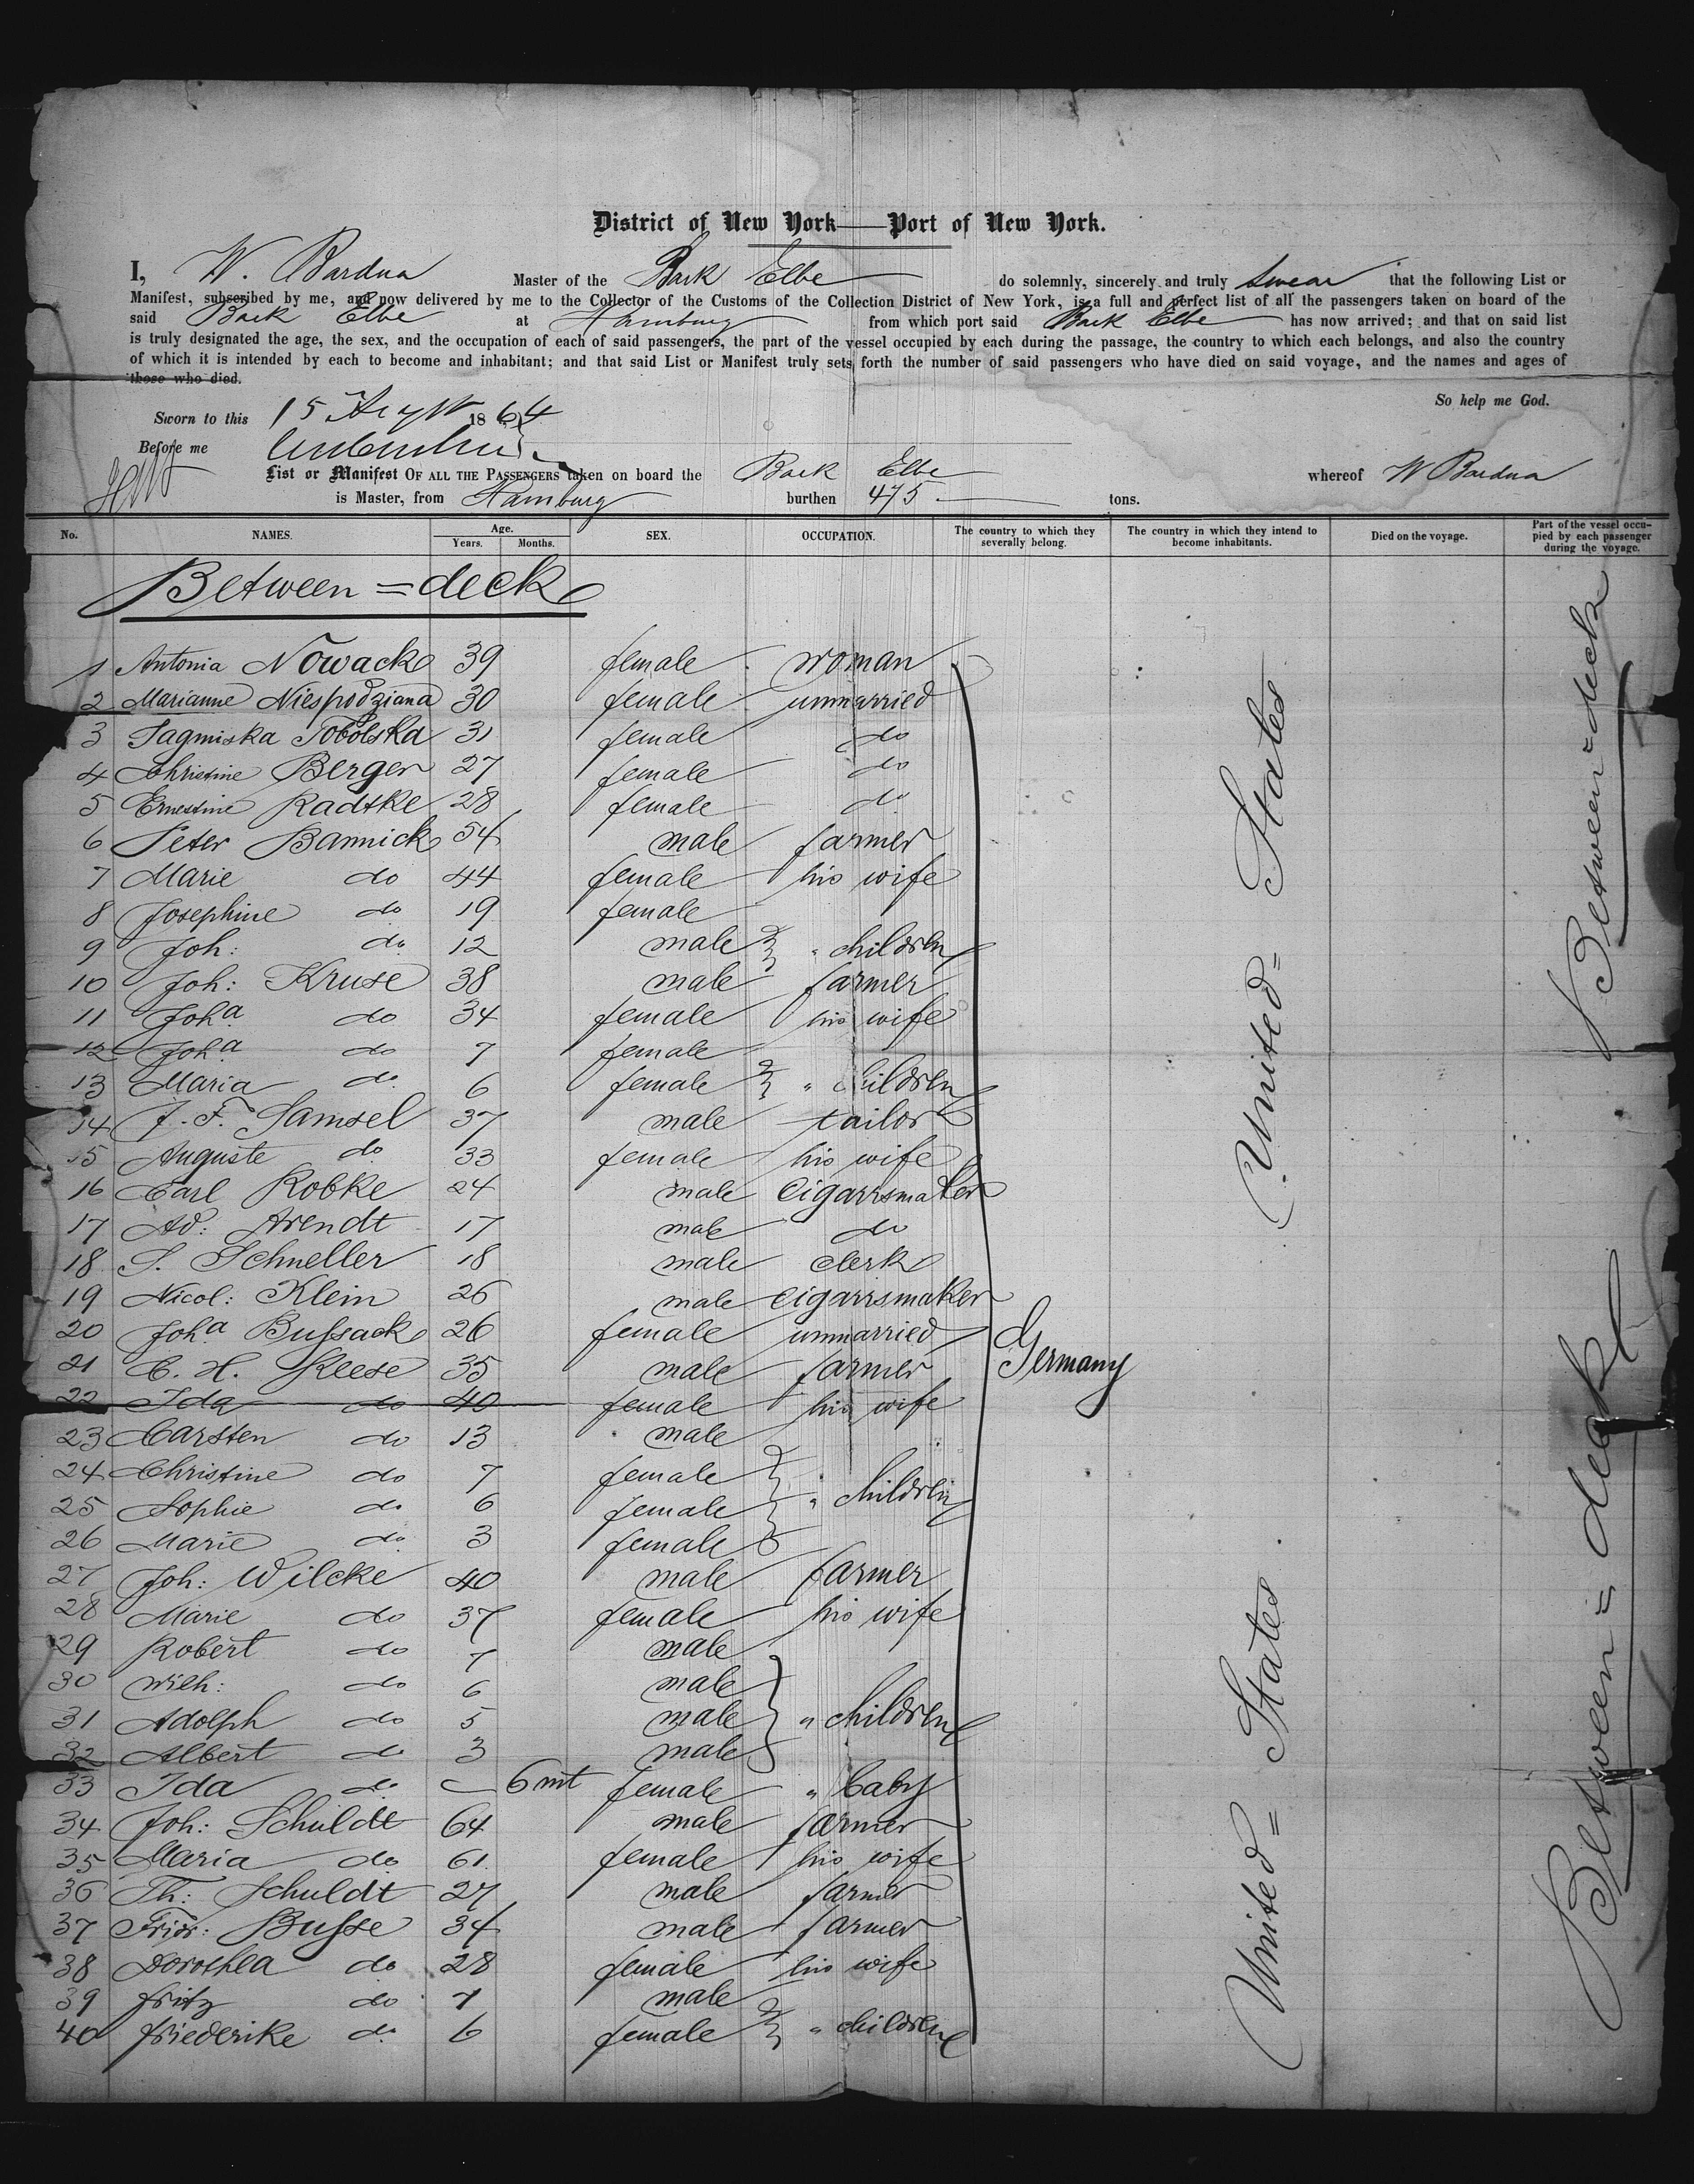 District of New York—Port of New York.
I, W. Bardua Master of the Bark Elbe do solemnly, sincerely and truly swear that the following List or
Manifest, subscribed by me, and now delivered by me to the Collector of the Customs of the Collection District of New York, is a full and perfect list of all the passengers taken on board of the
said Bark Elbe at Hamburg from which port said Bark Elbe has now arrived; and that on said list
is truly designated the age, the sex, and the occupation of each of said passengers, the part of the vessel occupied by each during the passage, the country to which each belongs, and also the country
of which it is intended by each to become and inhabitant; and that said List or Manifest truly sets forth the number of said passengers who have died on said voyage, and the names and ages of
those who died.
So help me God.
Sworn to this 15 August 1864
Before me
List or Manifest OF ALL THE PASSENGERS taken on board the Bark Elbe whereof W Bardua
is Master, from Hamburg burthen 475 tons.
No. NAMES. Age. Years. Months. SEX. OCCUPATION. The country to which they severally belong. The country in which they intend to become inhabitants. Died on the voyage. Part of the vessel occupied by each passenger during the voyage.
Between=deck
1 Antonia Nowack 39 female woman
2 Marianne Niespodziana 30 female unmarried
3 Tobolska 31 female do
4 Christine Berger 27 female do
5 Ernestine Radtke 28 female do
6 Peter Bannick 54 male farmer
7 Marie do 44 female his wife
8 Josephine do 19 female
9 Joh: do 12 male " children
10 Joh: Kruse 38 male farmer
11 Joha do 34 female his wife
12 Joha do 7 female
13 Maria do 6 female " children
14 J. F. Samsel 37 male tailor
15 Auguste do 33 female his wife
16 Carl Robke 24 male cigarrsmaker
17 Ad: Arendt 17 male do
18 S. Schneller 18 male clerk
19 Nicol: Klein 26 male cigarrsmaker
20 Joha Bussack 26 female unmarried
21 C. H. Keese 35 male farmer Germany
22 Ida do 40 female his wife
23 Carsten do 13 male
24 Christine do 7 female
25 Sophie do 6 female " children
26 Marie do 3 female
27 Joh: Wilcke 40 male farmer
28 Marie do 37 female his wife
29 Robert do 7 male
30 Wilh: do 6 male
31 Adolph do 5 male " children
32 Albert do 3 male
33 Ida do — 6 mt female " baby
34 Joh: Schuldt 64 male farmer
35 Maria do 61 female his wife
36 Th: Schuldt 27 male farmer
37 Fridr: Busse 34 male farmer
38 Dorothea do 28 female his wife
39 Fritz do 7 male
40 Friederike do 6 female " children
United= States
United= States
Between=deck
Between=deck